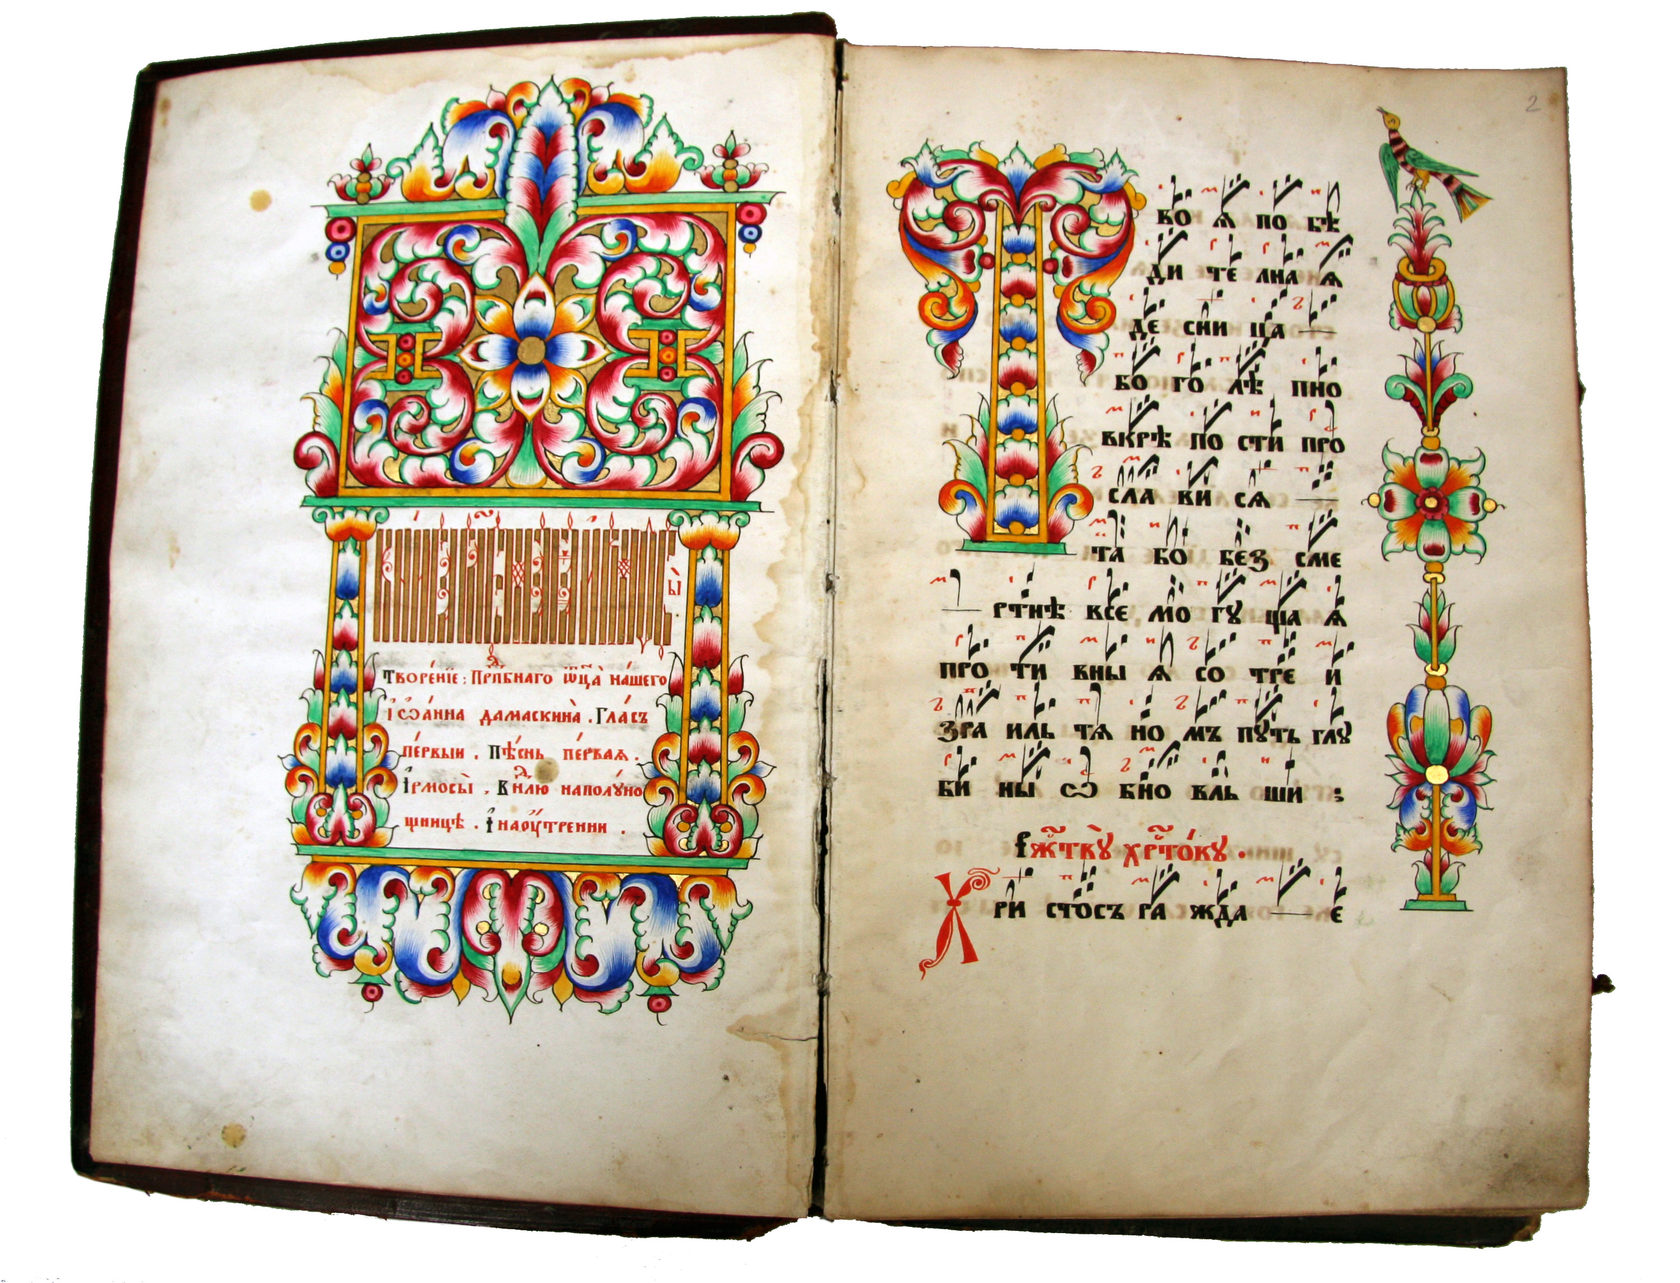 Творе́нїе: Прпⷣбнаго ѿц҃а̀ на́шего
Їѡа́нна дамаскина̀. Гла́съ
пе́рвыи. Пѣ́снь пе́рвая.
Їрмосы̀. Внⷣлю наполꙋ́но
щницѣ. І҆ наоу́трении.
2
Т
во ѧ по бѣ
ди те лна ѧ
де сни ца
бо го лѣ пно
вкрѣ по сти про
сла ви сѧ
та бо без сме
ртнѣ все мо гꙋ ща ѧ
про ти вны ѧ со тре и
зра иль тѧ но мъ пꙋть глꙋ
би ны ѡ бно вль ши :
Рж҃твꙋ̀ хр҃то́вꙋ.
Хри стосъ га жда е